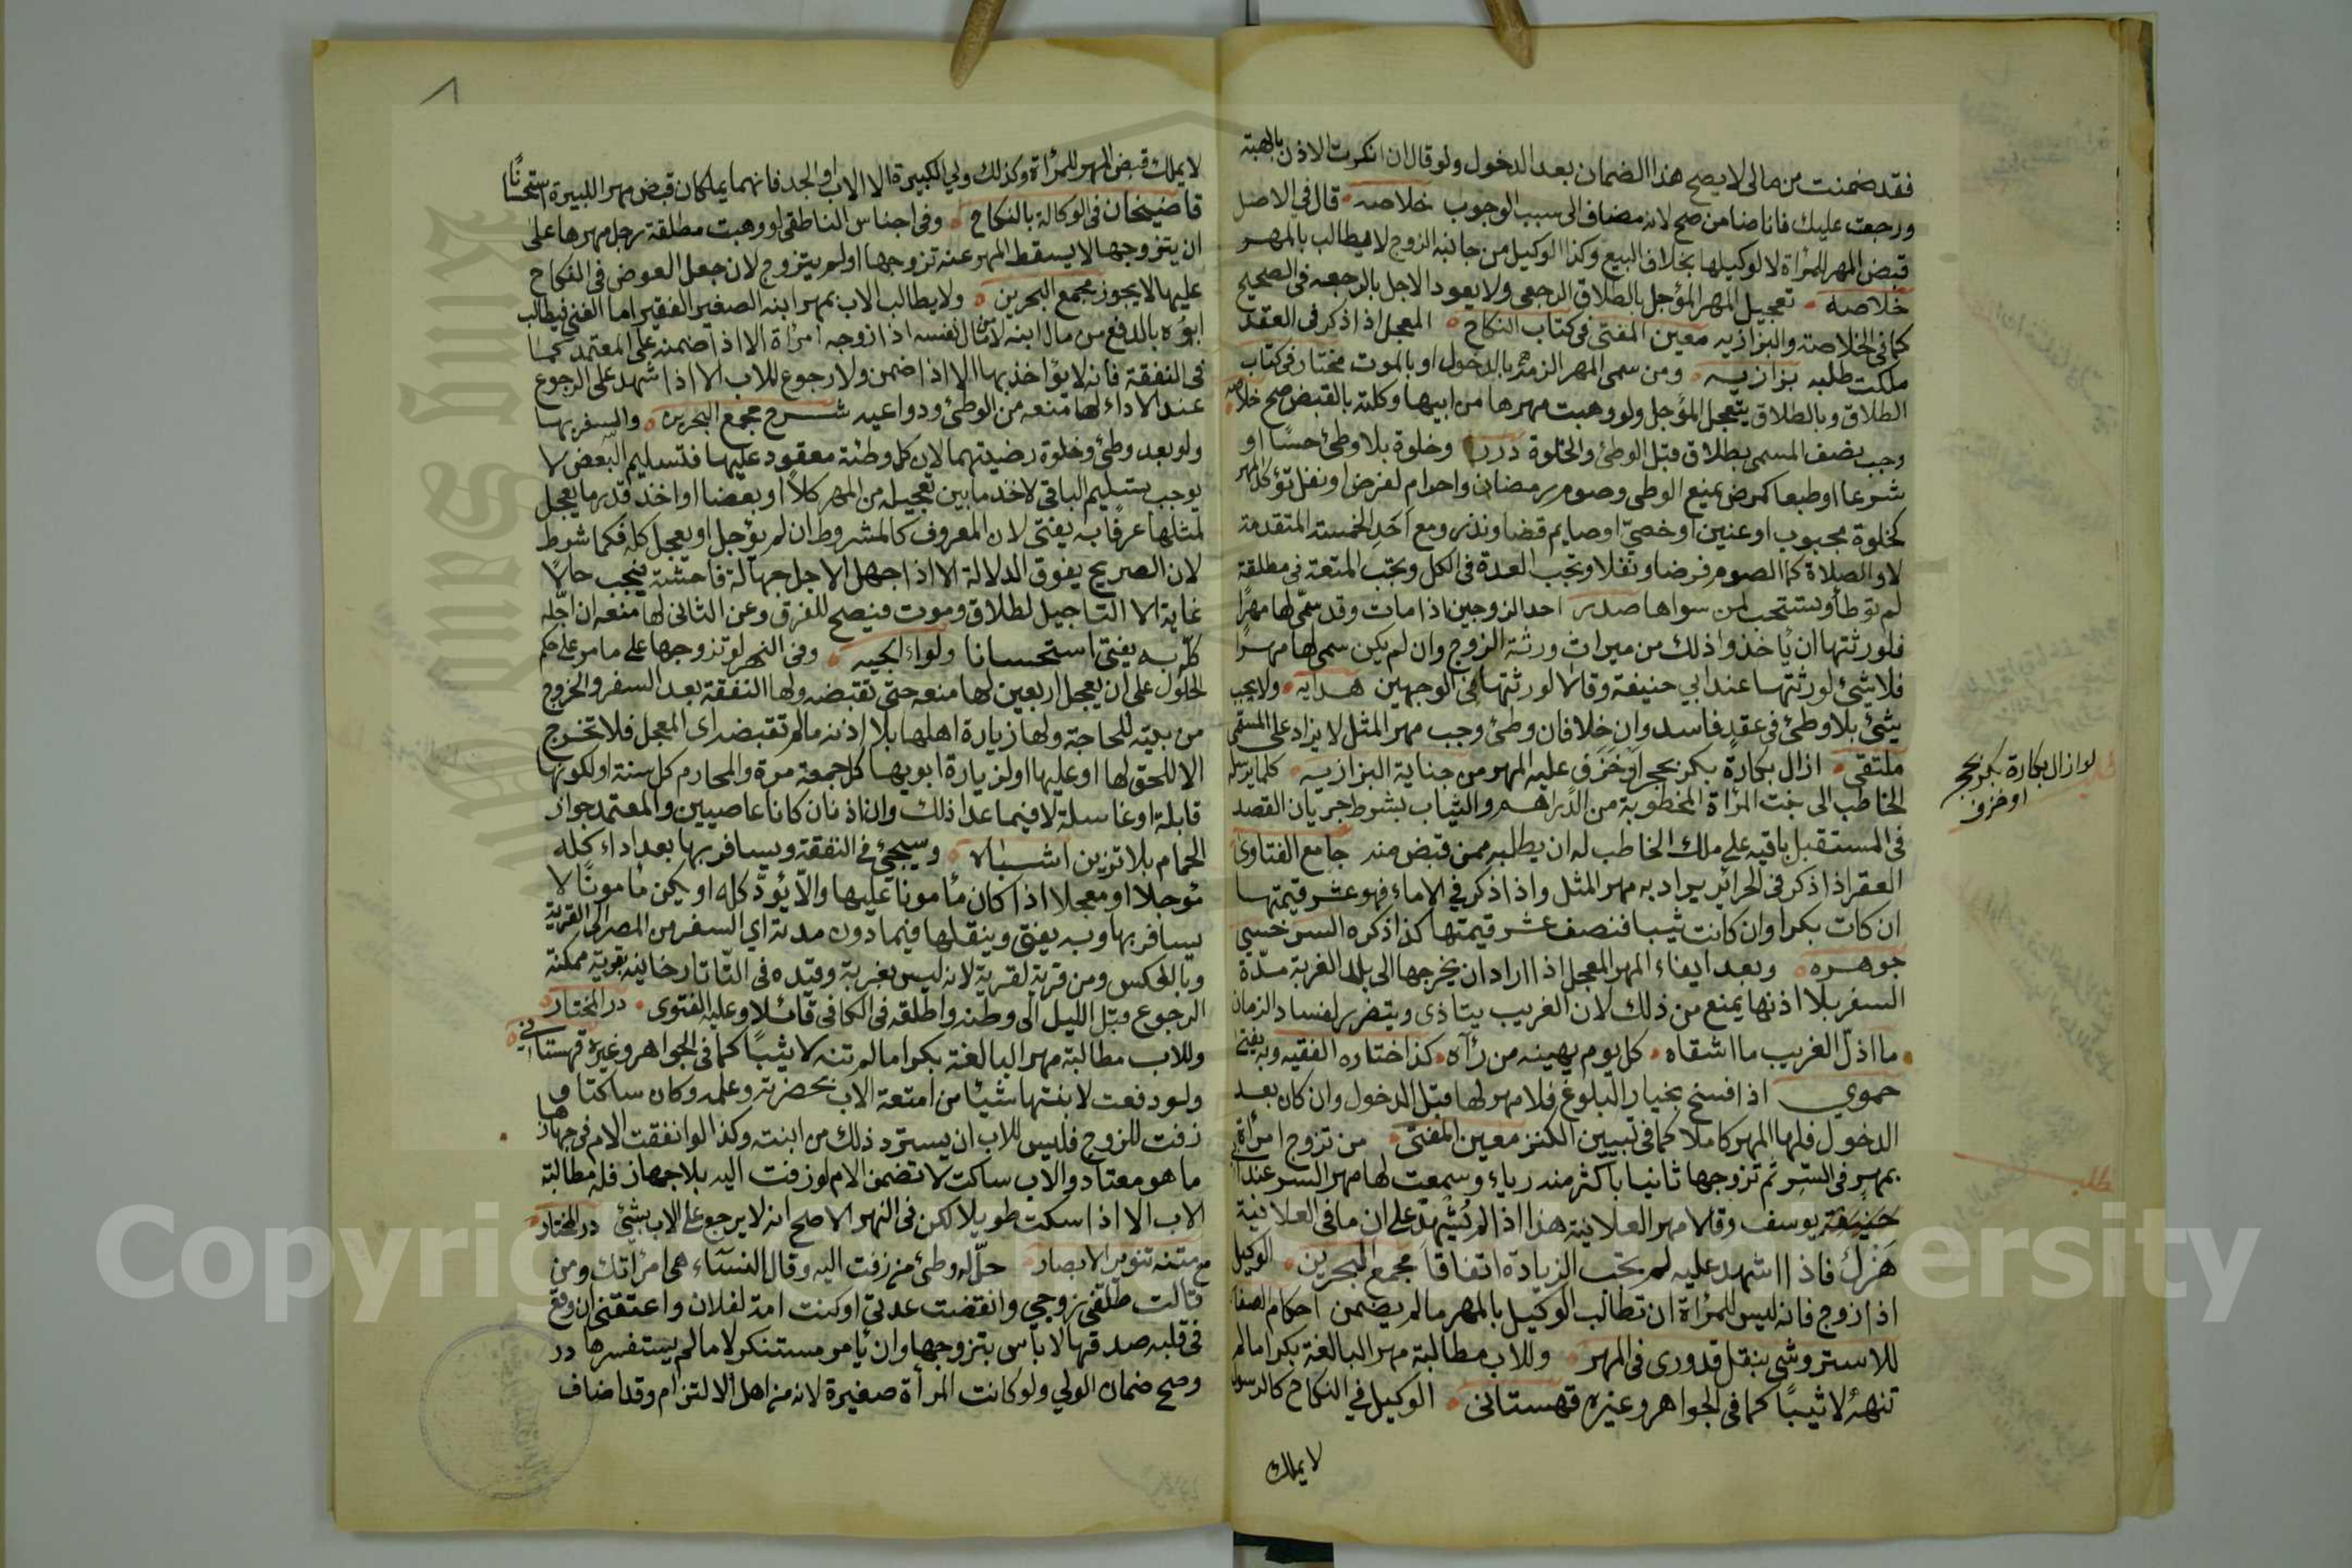 فقد ضمنت من مالى لا يصح هذا الضمان بعد الدخول ولو قال ان انكرت الاذن بالهبة
ورجعت عليك فانا ضامن صح لانه مضاف الى سبب الوجوب خلاصه قال في الاصل
قبض المهر للمرأة لا لوكيلها بخلاف البيع وكذا الوكيل من جانبه الزوج لا يطالب بالمهر
خلاصه تعجيل المهر المؤجل بالطلاق الرجعي ولا يعود الاجل بالرجعه فى الصحيح
كما في الخلاصة والبزازيه معين المفتى في كتاب النكاح المعجل اذا ذكر فى العقد
ملكت طلبه بزازيه ومن سمى المهر الزمه بالدخول او بالموت مختار في كتاب
الطلاق وبالطلاق يتعجل المؤجل ولو وهبت مهرها من ابيها وكلته بالقبض صح خلاصه
وجب بضف المسمى بطلاق قبل الوطئ والخلوة درر وخلوة بلا وطئ حسًا او
شرعا او طبعا كمرض يمنع الوطى وصوم رمضان واحرام لفرض او نفل تؤكد المهر
كخلوة مجبوب او عنين او خصيّ او صايم قضا ونذر ومع احد الخمسة المتقدمة
لا والصلاة كالصوم فرضا ونفلا وتجب العدة في الكل وتجب المتعة في مطلقة
لم توطأ وتستحب لمن سواها صدر احد الزوجين اذا مات وقد سمّى لها مهرًا
فلورثتها ان يأخذوا ذلك من ميراث ورثة الزوج وان لم يكن سمى لها مهرًا
فلا شئ لورثتها عند ابي حنيفة وقالا لورثتها في الوجهين هدايه ولا يجب
شئ بلا وطئ في عقد فاسد وان خلا فان وطئ وجب مهر المثل لا يزاد على المسمى
ملتقى ازال بكارة بكر بحجر او خزف عليه المهر من جناية البزازيه كلما يرسله
الخاطب الى بنت المرأة المخطوبة من الدراهم والثياب بشرط جريان القصد
في المستقبل باقيه على ملك الخاطب له ان يطلبه ممن قبض منه جامع الفتاوى
العقر اذا ذكر فى الحرائر يراد به مهر المثل واذا ذكر في الاماء فهو عشر قيمتها
ان كانت بكرا وان كانت ثيبا فنصف عشر قيمتها كذا ذكره السرخسي
جوهره وبعد ايفاء المهر المعجل اذا اراد ان يخرجها الى بلاد الغربة مدّة
السفر بلا اذنها يمنع من ذلك لان الغريب يتاذى ويتضرر لفساد الزمان
ما اذلّ الغريب ما اشقاه كل يوم يهينه من رآه كذا اختاره الفقيه وبه يفتى
حموي اذا فسخ بخيار البلوغ فلا مهر لها قبل الدخول وان كان بعد
الدخول فلها المهر كاملا كما في تبيين الكنز معين المفتى من تزوج امرأة
بمهر في السر ثم تزوجها ثانيا باكثر منه رياء وسمعت لها مهر السر عند ابي
حنيفة يوسف وقالا مهر العلانية هذا اذا لم يُشهد على ان ما في العلانية
هزل فاذا اشهد عليه لم تجب الزيادة اتفاقًا مجمع البحرين الوكيل
اذا زوج فانه ليس للمرأة ان تطالب الوكيل بالمهر ما لم يضمن احكام الصغار
للاستروشى بنقل قدورى فى المهر وللاب مطالبة مهر البالغة بكرا ما لم
تنهه لا ثيبًا كما في الجواهر وغيره قهستانى الوكيل في النكاح كالرسول
لا يملك
لو ازال بكارة بكر بحجر
او خزف
مطلب
٨
لا يملك قبض المهر للمرأة وكذلك ولي الكبيرة الا الاب او الجد فانهما يملكان قبض مهر الكبيرة استحسانًا
قاضيخان فى الوكالة بالنكاح وفى اجناس الناطفى لو وهبت مطلقة رجل مهرها على
ان يتزوجها لا يسقط المهر عنه تزوجها او لم يتزوج لان جعل العوض فى النكاح
عليها لا يجوز مجمع البحرين ولا يطالب الاب بمهر ابنه الصغير الفقير اما الغني فيطالب
ابوه بالدفع من مال ابنه لا من مال نفسه اذا زوجه امرأة الا اذا ضمنه على المعتمد كما
فى النفقة فانه لا يؤاخذ بها الا اذا ضمن ولا رجوع للاب الا اذا اشهد على الرجوع
عند الاداء لها منعه من الوطئ ودواعيه شرح مجمع البحرين والسفر بها
ولو بعد وطئ وخلوة رضيتهما لان كل وطئة معقود عليها فتسليم البعض لا
يوجب تسليم الباقي لاخذ ما بين تعجيله من المهر كلاً او بعضا او اخذ قدر ما يعجل
لمثلها عرفًا به يفتى لان المعروف كالمشروط ان لم يؤجل او يعجل كله فكما شرط
لان الصريح يفوق الدلالة الا اذا جهل الاجل جهالة فاحشة فيجب حالًا
غاية الا التاجيل لطلاق وموت فيصح للفرق وعن الثانى لها منعه ان اجّله
كلّه به يفتى استحسانا ولوالجيه وفى النهر لو تزوجها على ماىة على حكم
الحلول على ان يعجل اربعين لها منعه حتى تقبضه ولها النفقة بعد السفر والخروج
من بيته للحاجة ولها زيارة اهلها بلا اذنه ما لم تقبضه اى المعجل فلا تخرج
الا للحق لها او عليها او لزيارة ابويها كل جمعة مرة والمحارم كل سنة او لكونها
قابلة او غاسلة لا فيما عدا ذلك وان اذن كانا عاصيين والمعتمد جواز
الحمام بلا تزين اشباه وسيجئ في النفقة ويسافر بها بعد اداء كله
مؤجلا او معجلا اذا كان مأمونا عليها والا يؤدّ كله او لم يكن مأمونًا لا
يسافر بها وبه يفتى وينقلها فيما دون مدته اي السفر من المصر الى القرية
وبالعكس ومن قرية لقرية لانه ليس بغربة وقيده فى التاتارخانيه بقرية يمكنه
الرجوع قبل الليل الى وطنه واطلقه فى الكافى قائلا وعليه الفتوى در المختار
وللاب مطالبة مهر البالغة بكرا ما لم تنه لا ثيبًا كما فى الجواهر وغيره قهستانى
ولو دفعت لابنتها شيئا من امتعة الاب بحضرته وعلمه وكان ساكتا و
زفت للزوج فليس للاب ان يسترد ذلك من ابنته وكذا لو انفقت الام فى جهازها
ما هو معتاد والاب ساكت لا تضمن الام لو زفت اليه بلا جهاز فله مطالبة
الاب الا اذا سكت طويلا لكن فى النهر الاصح انه لا يرجع على الاب بشئ در المختار
مع متنه تنوير الابصار حلّ له وطئ من زفت اليه وقال النساء هى امرأتك ومن
قالت طلقنى زوجي وانقضت عدتي او كنت امة لفلان واعتقنى ان وقع
فى قلبه صدقها لا بأس بتزوجها وان بأمر مستنكر لا ما لم يستفسرها در
وصح ضمان الولي ولو كانت المرأة صغيرة لانه من اهل الالتزام وقد اضاف
King Saud
Copyright
ersity